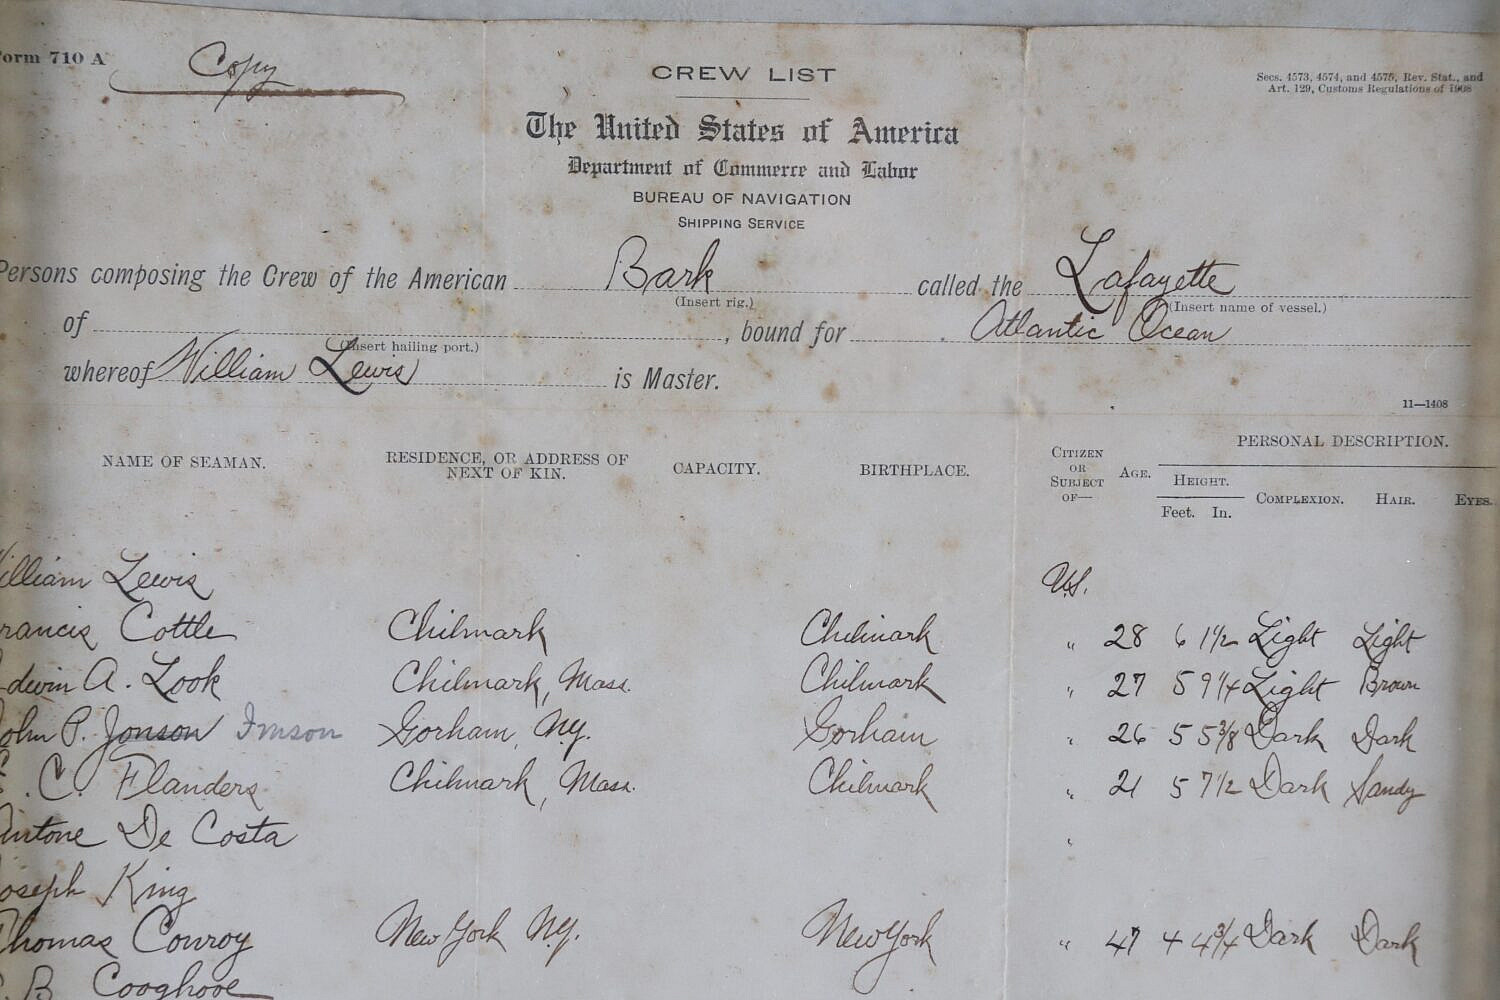 orm 710 A
Copy
CREW LIST
Secs. 4573, 4574, and 4575, Rev. Stat., and
Art. 129, Customs Regulations of 1908
The United States of America
Department of Commerce and Labor
BUREAU OF NAVIGATION
SHIPPING SERVICE
Persons composing the Crew of the American Bark called the Lafayette
(Insert rig.) (Insert name of vessel.)
of , bound for Atlantic Ocean
(Insert hailing port.)
whereof William Lewis is Master.
11—1408
NAME OF SEAMAN. RESIDENCE, OR ADDRESS OF NEXT OF KIN. CAPACITY. BIRTHPLACE. CITIZEN OR SUBJECT OF— AGE. PERSONAL DESCRIPTION.
HEIGHT. COMPLEXION. HAIR. EYES.
Feet. In.
illiam Lewis U.S.
rancis Cottle Chilmark Chilmark " 28 6 1 1/2 Light Light
dwin A. Look Chilmark, Mass. Chilmark " 27 5 9 1/4 Light Brown
ohn P. Jonson Imson Gorham, N.Y. Gorham " 26 5 5 3/8 Dark Dark
. C. Flanders Chilmark, Mass. Chilmark " 21 5 7 1/2 Dark Sandy
Antone De Costa "
oseph King
Thomas Conroy New York N.Y. New York " 47 4 4 3/4 Dark Dark
B